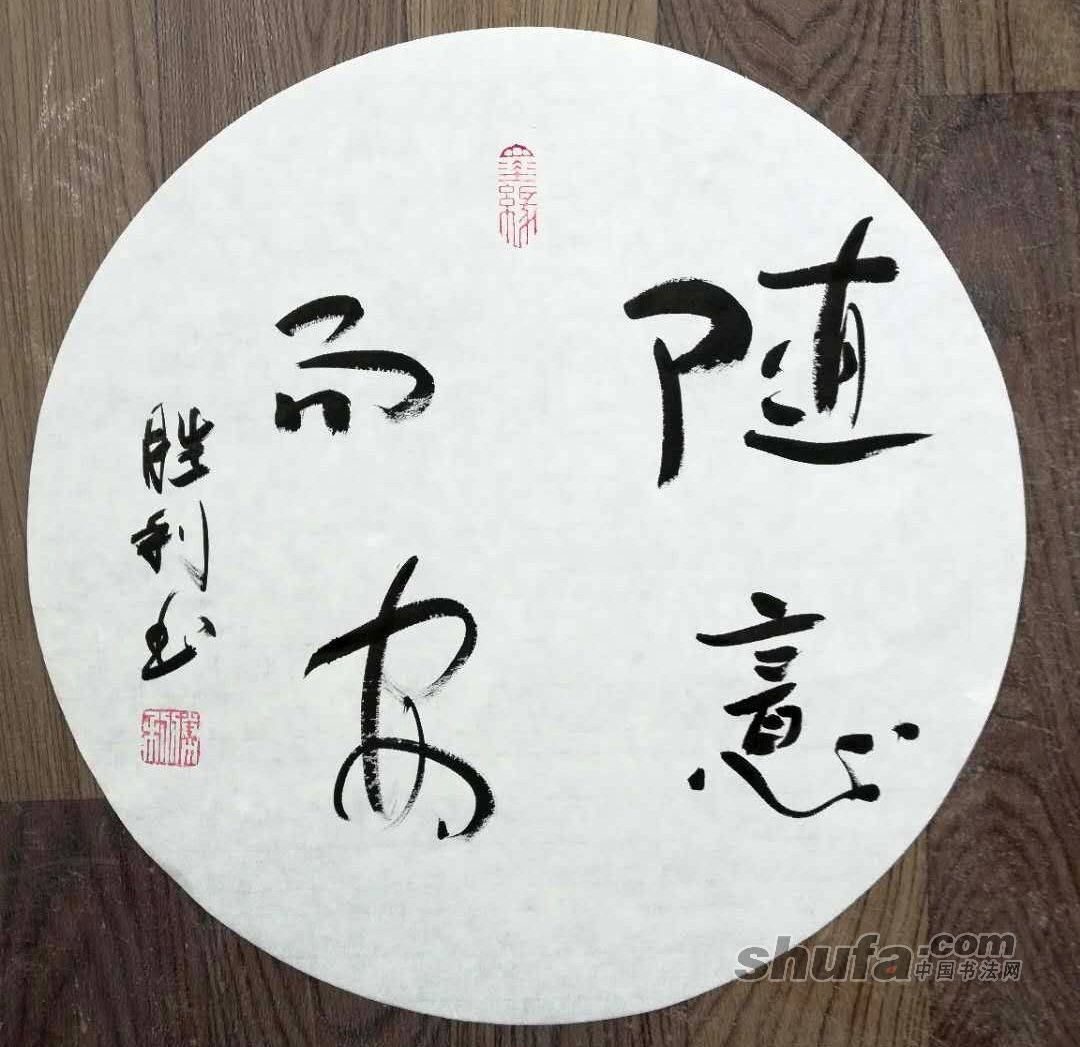 随意
而安
胜利书
墨缘
shufa.com
中国书法网